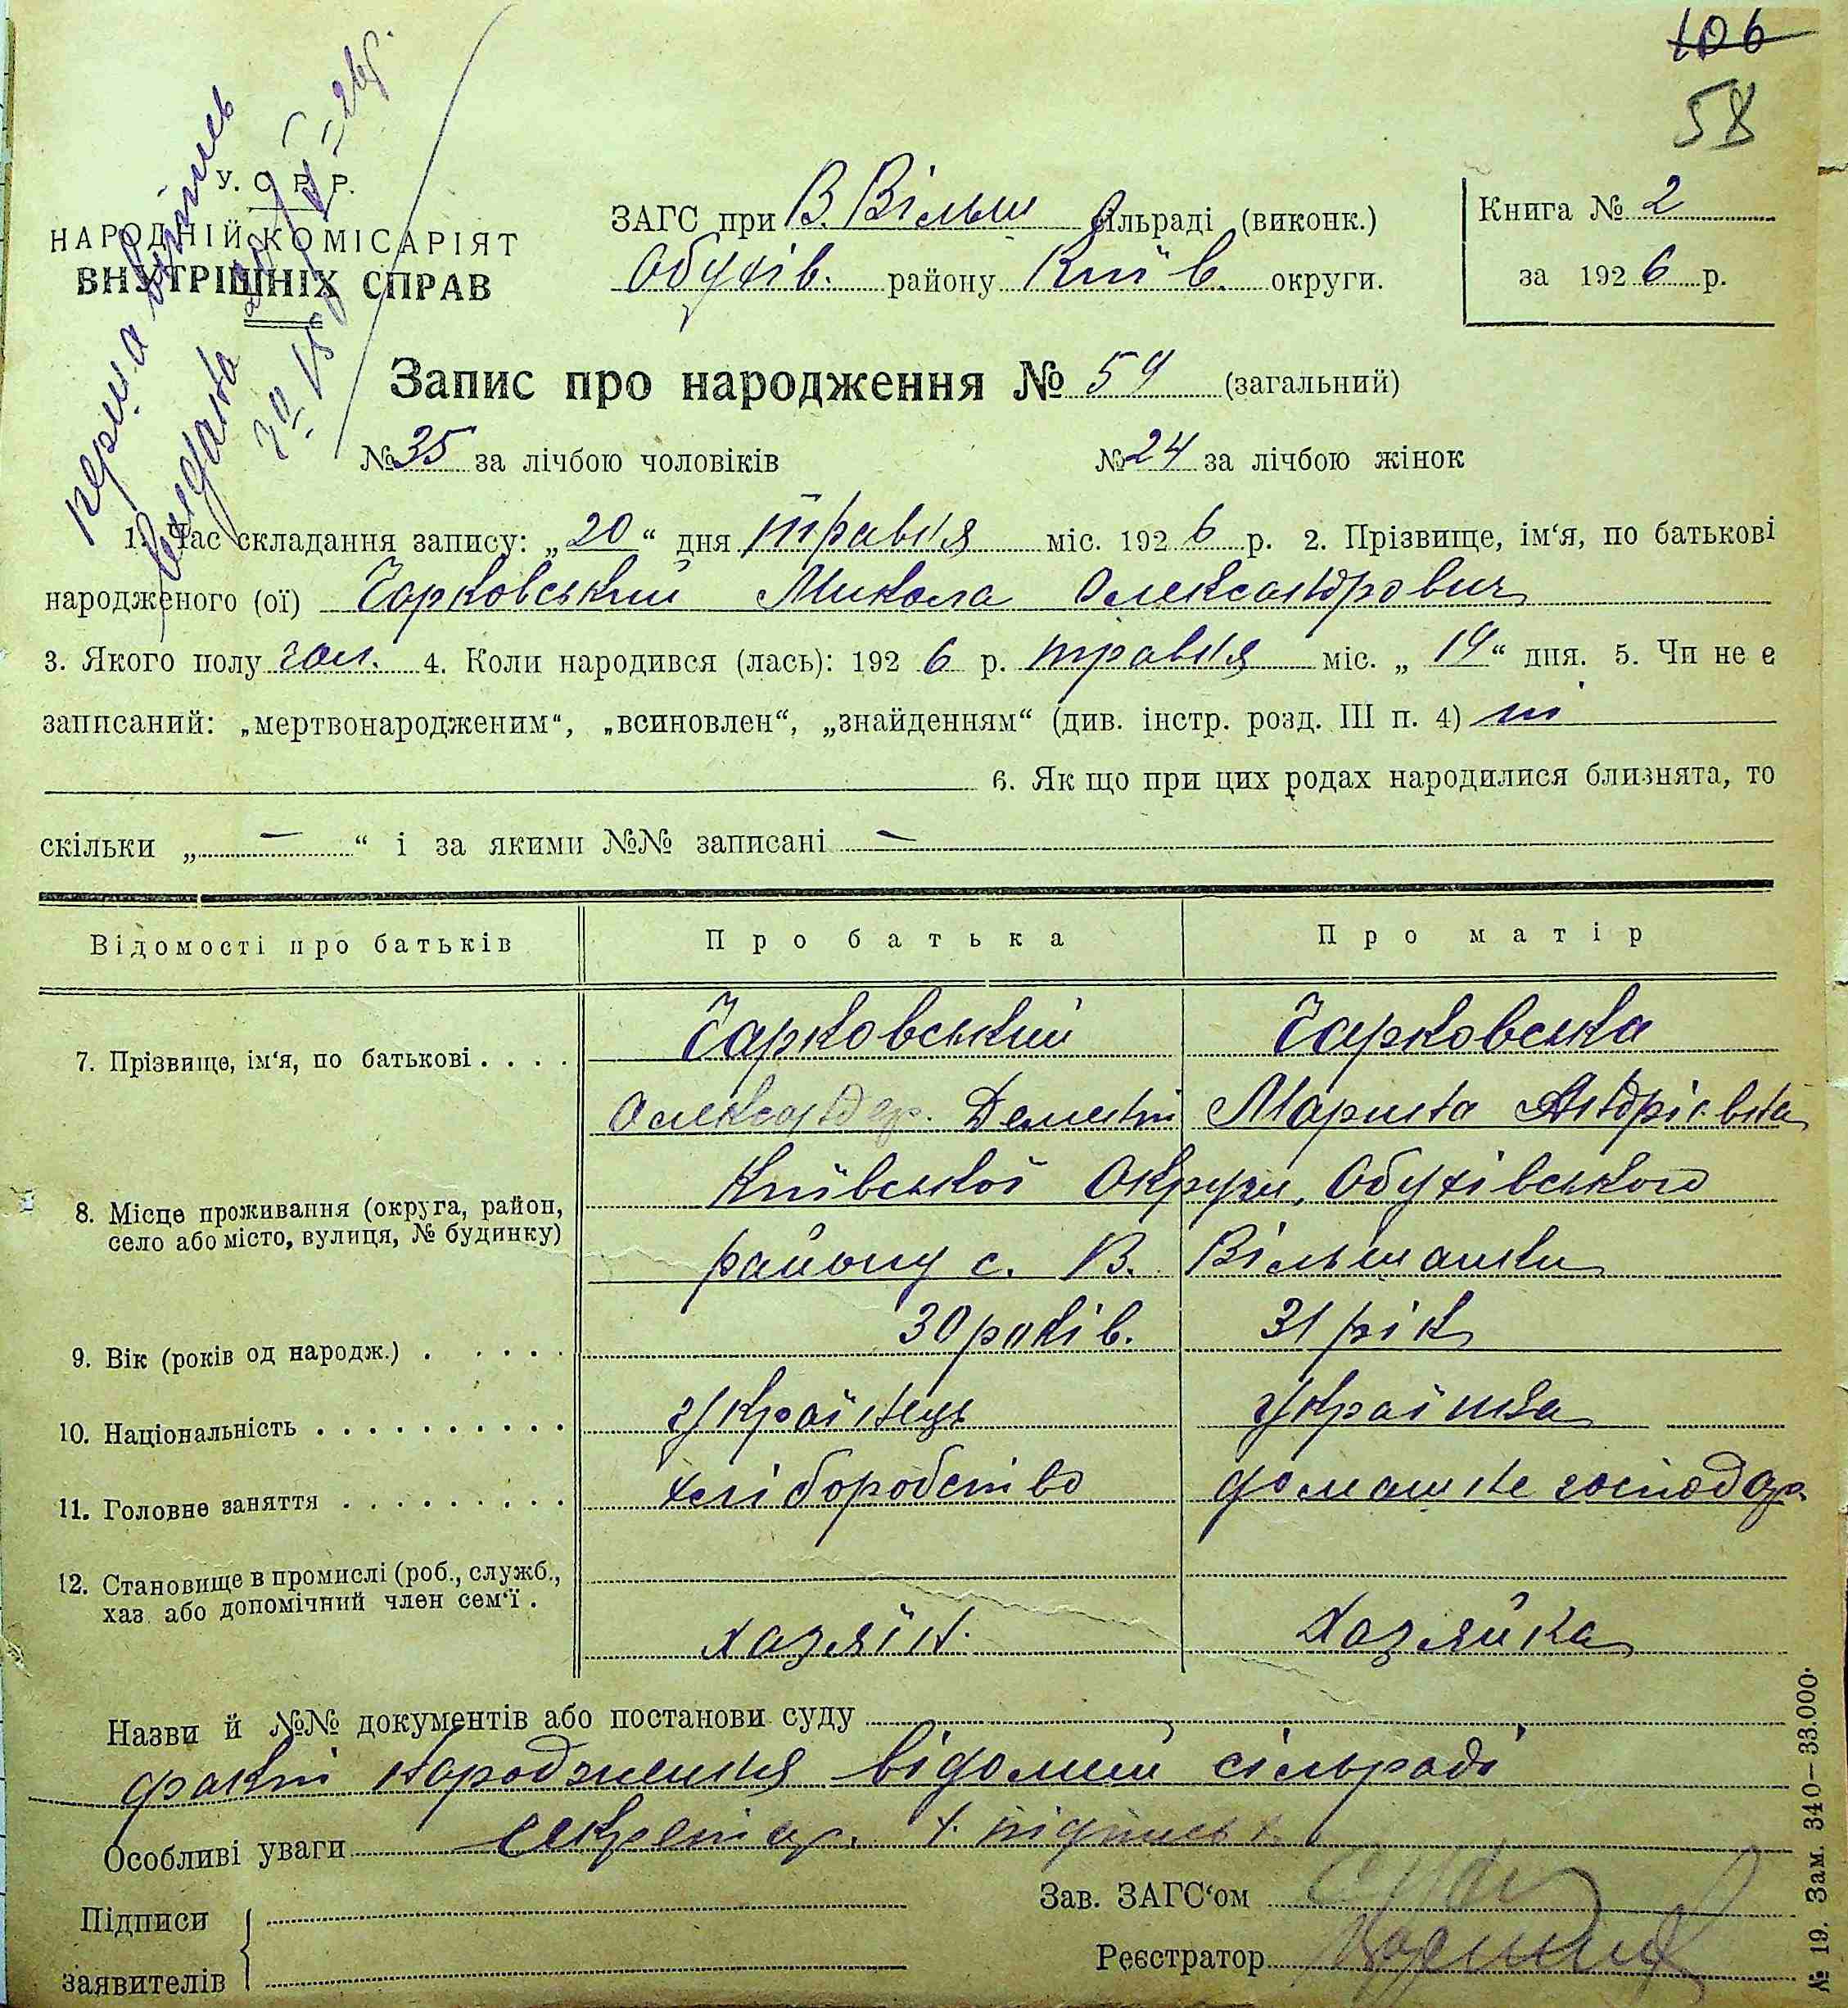 106
58
перша випись
видана
20/V
У. С. Р. Р.
НАРОДНІЙ КОМІСАРІЯТ
ВНУТРІШНІХ СПРАВ
ЗАГС при В. Вільш сільраді (виконк.)
Обухів. району Київ. округи.
Книга № 2
за 1926 р.
Запис про народження № 59 (загальний)
№ 35 за лічбою чоловіків № 24 за лічбою жінок
1. Час складання запису: „20“ дня травня міс. 1926 р. 2. Прізвище, ім‘я, по батькові
народженого (ої) Чарковський Микола Олександрович
3. Якого полу чол. 4. Коли народився (лась): 1926 р. травня міс. „19“ дня. 5. Чи не є
записаний: „мертвонародженим“, „всиновлен“, „знайденням“ (див. інстр. розд. III п. 4) ні
6. Як що при цих родах народилися близнята, то
скільки „ — “ і за якими №№ записані —
Відомості про батьків Про батька Про матір
7. Прізвище, ім‘я, по батькові . . . . Чарковський Чарковська
Олександер. Демент Марина Андріївна
8. Місце проживання (округа, район, село або місто, вулиця, № будинку) Київської Округи, Обухівського
району с. В. Вільшанки
9. Вік (років од народж.) . . . . . 30 років. 31 рік
10. Національність . . . . . . . . . . Українець Українка
11. Головне заняття . . . . . . . . . хліборобство домашнє господар
12. Становище в промислі (роб., служб., хаз. або допомічний член сем‘ї . хазяїн. Хазяйка
Назви й №№ документів або постанови суду
факт народження відомий сільраді
Особливі уваги секретар. підпись
Підписи
заявителів
Зав. ЗАГС‘ом
Реєстратор
№ 19. Зам. 340—33.000.